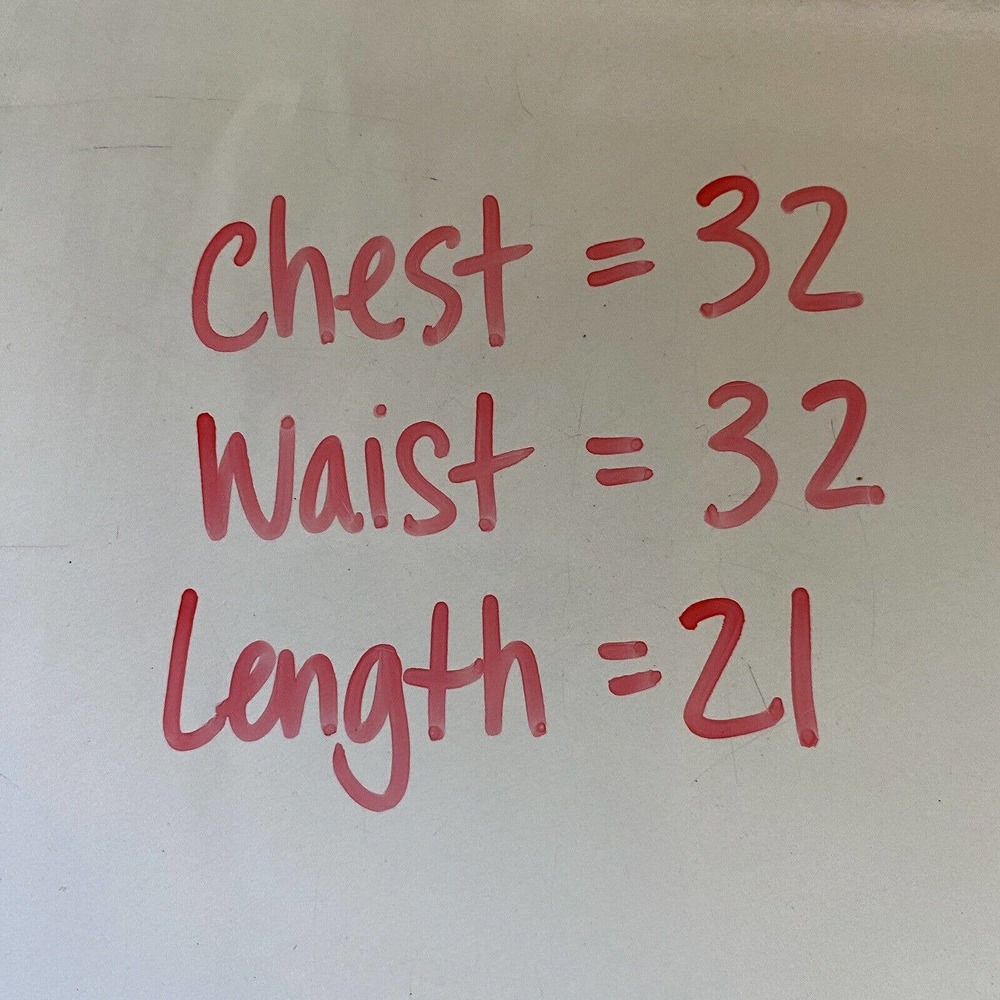 Chest = 32
Waist = 32
Length = 21